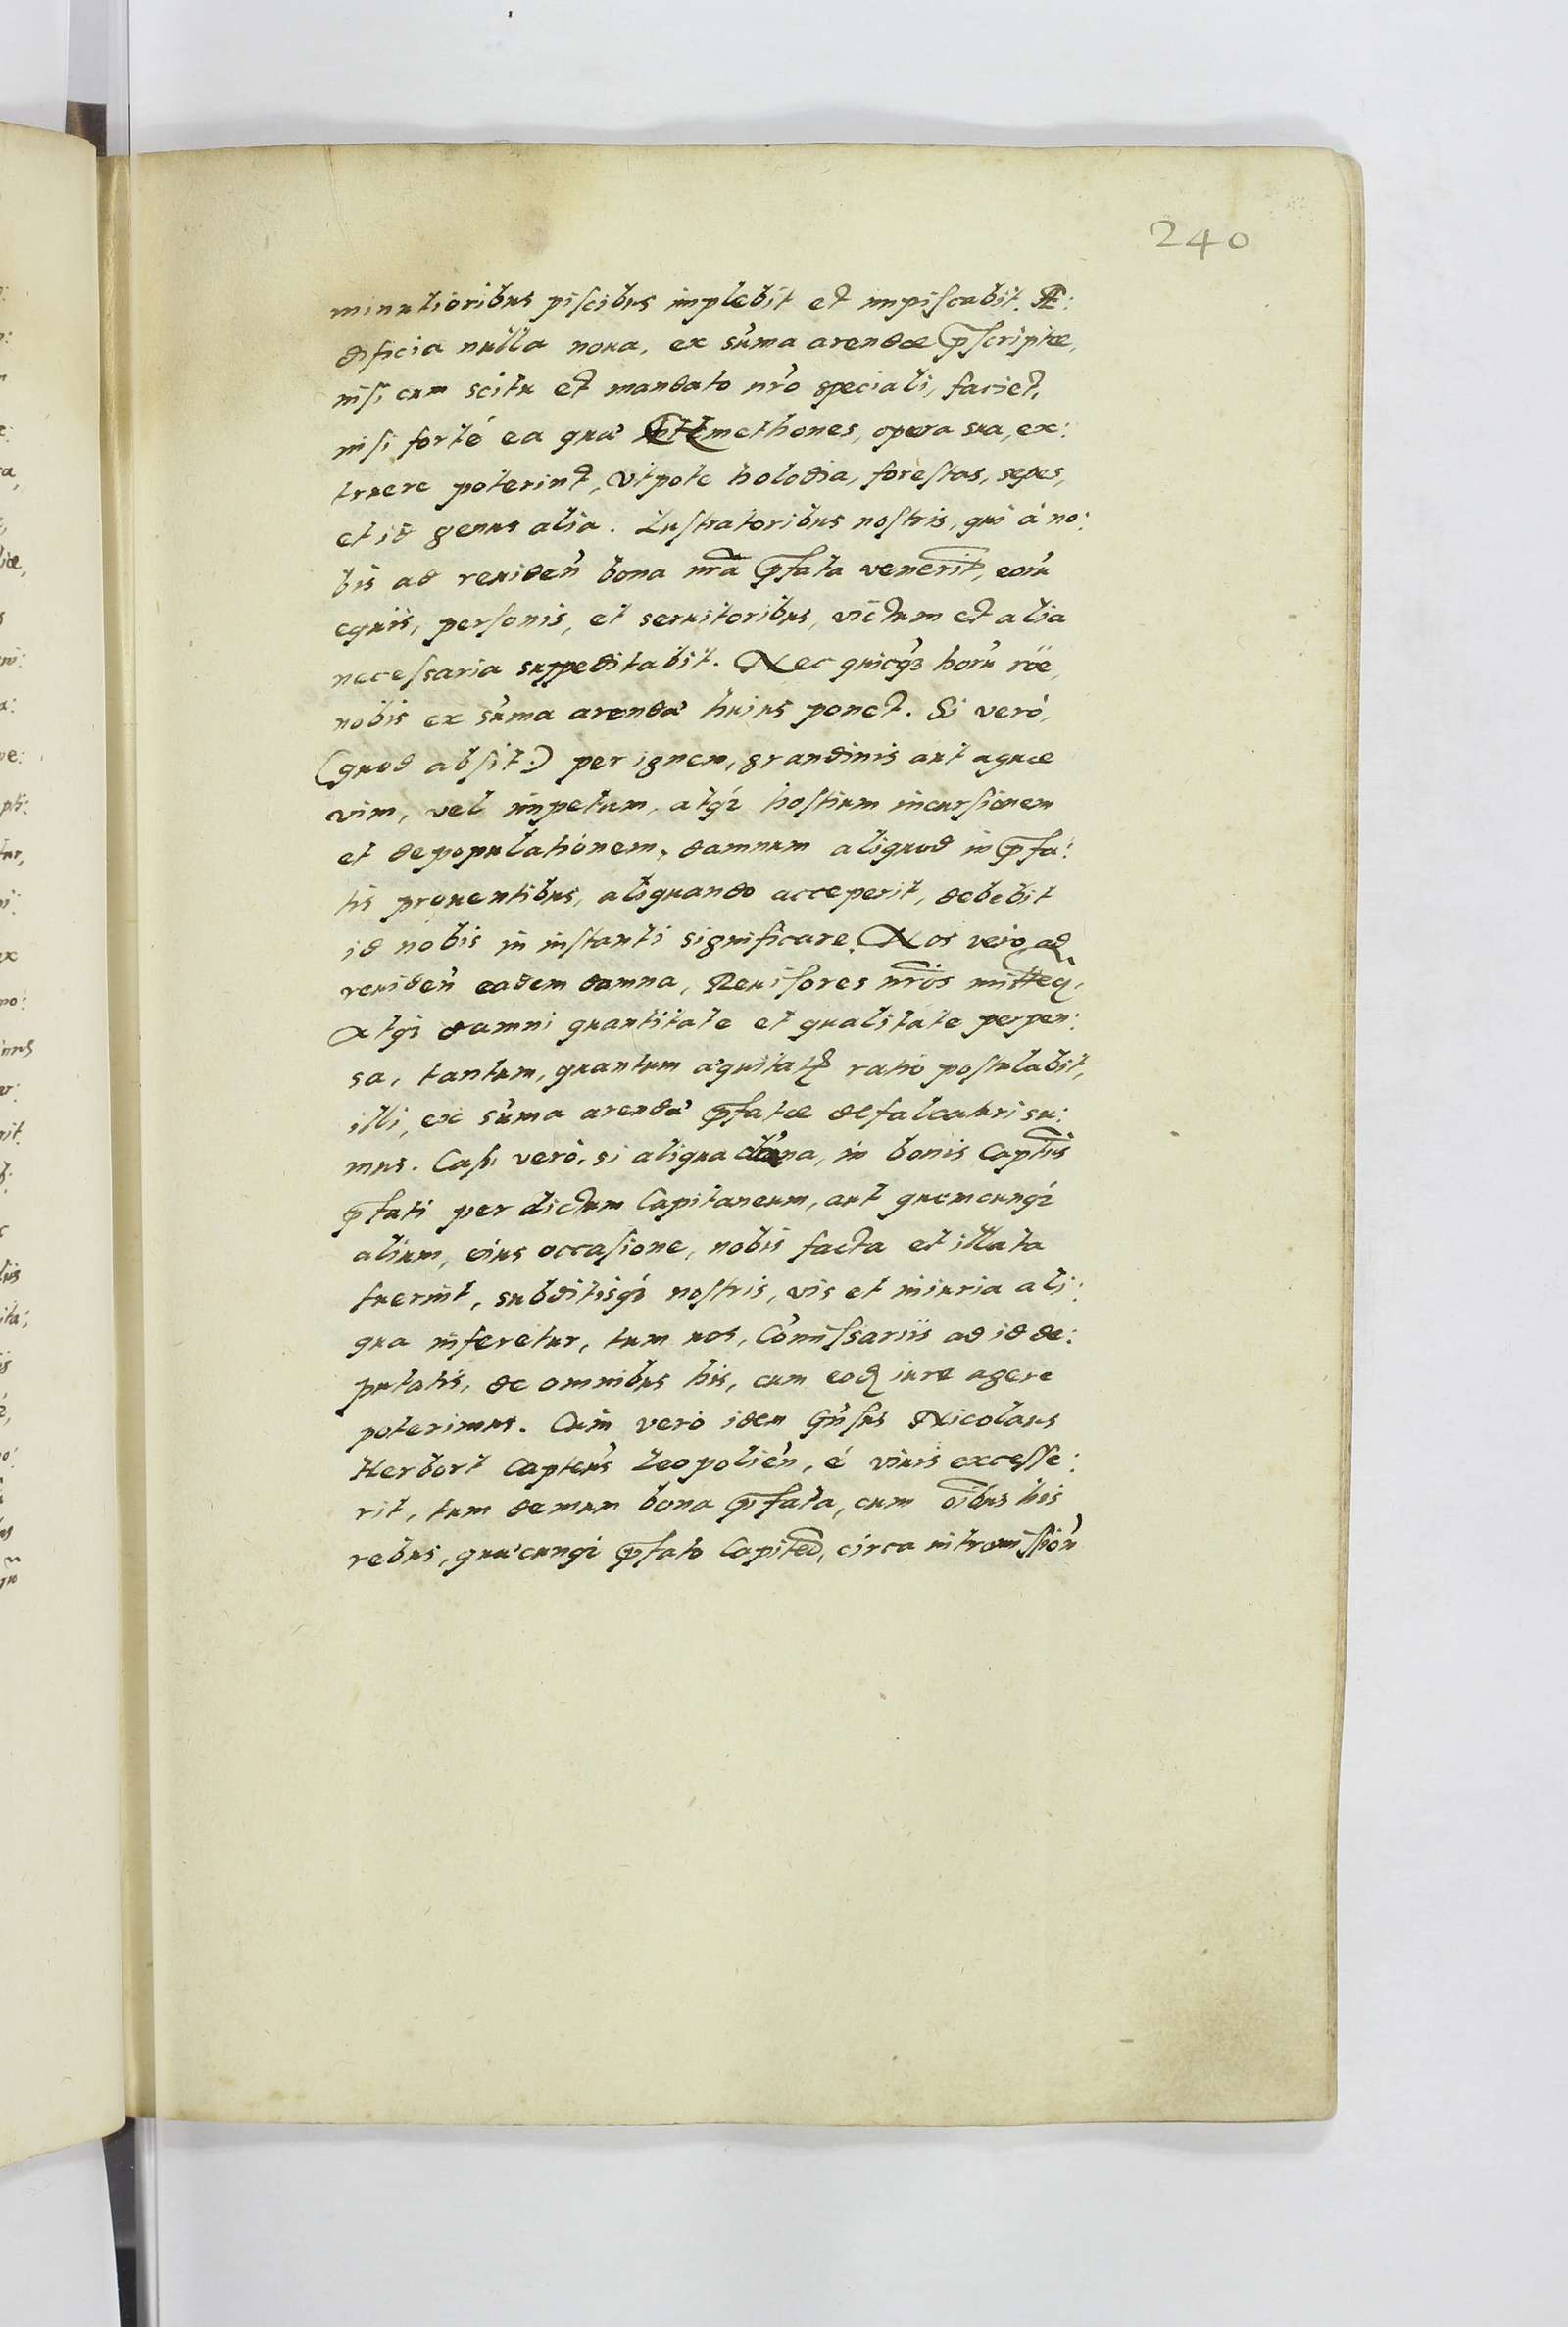 240
minutioribus piscibus implebit et impiscabit. Æ:
dificia nulla noua, ex sum̃a arendæ p̃scriptæ,
nisi cum scitu et mandato nr̃o speciali, faciet,
nisi fortè ea quæ Kmethones, opera sua, ex:
truere poterint, vtpote holodia, forestas, sepes,
et id genus alia. Lustratoribus nostris, qui à no:
bis ad reuideñ bona nr̃a p̃fata venerit, eorũ
equis, personis, et seruitoribus, victum et alia
necessaria suppeditabit. Nec quicq̃ horũ rõe,
nobis ex sum̃a arendæ huius ponet. Si verò,
(quod absit.) per ignem, grandinis aut aquæ
vim, vel impetum, atq3 hostium incursionem
et depopulationem, damnum aliquod in p̃fa:
tis prouentibus, aliquando acceperit, debebit
id nobis in instanti significare. Nos vero ad
reuideñ eadem damna, Reuisores nr̃os mittem9.
Atq3 damni quantitate et qualitate perpen:
sa, tantum, quantum æquitatis ratio postulabit,
illi, ex sum̃a arendæ p̃fatæ defalcaturi su:
mus. Casu verò, si aliqua dãna, in bonis Captus
p̃fati per dictum Capitaneum, aut quemcunq3
alium, eius occasione, nobis facta et illata
fuerint, subditisq3 nostris, vis et iniuria ali:
qua inferetur, tum nos, Com̃issariis ad id de:
putatis, de omnibus his, cum eod iure agere
poterimus. Cum verò idem Gñsus Nicolaus
Herbort Capteus Leopolieñ, è viuis excesse:
rit, tum demum bona p̃fata, cum oĩbus his
rebus, quæcunq3 p̃fato Capiteo, circa intromissioñ